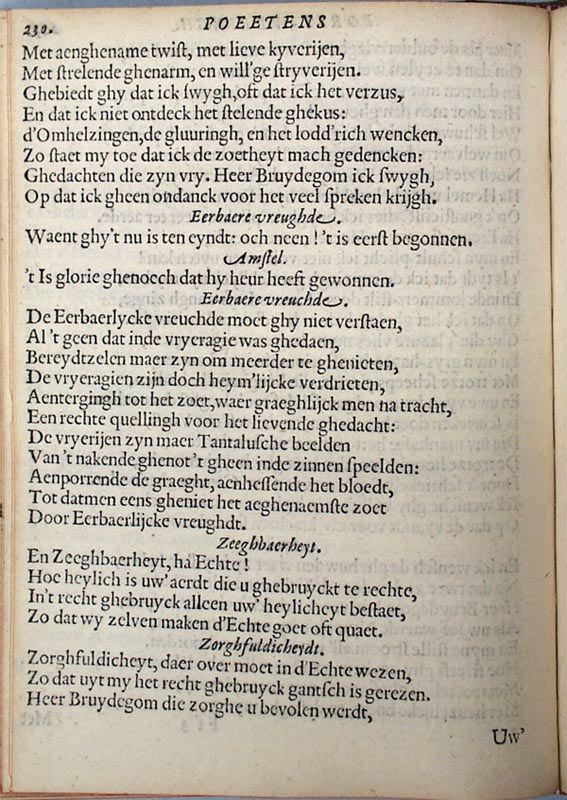 230. POEETENS
Met aenghename twist, met lieve kyverijen,
Met strelende ghenarm, en will'ge stryverijen.
Ghebiedt ghy dat ick swygh, oft dat ick het verzus,
En dat ick niet ontdeck het stelende ghekus:
d'Omhelzingen, de gluuringh, en het lodd'rich wencken,
Zo staet my toe dat ick de zoetheyt mach gedencken:
Ghedachten die zyn vry. Heer Bruydegom ick swygh,
Op dat ick gheen ondanck voor het veel spreken krijgh.
Eerbaere vreughde.
Waent ghy't nu is ten eyndt: och neen! 't is eerst begonnen.
Amstel.
't Is glorie ghenoech dat hy heur heeft gewonnen.
Eerbaere vreuchde.
De Eerbaerlycke vreuchde moet ghy niet verstaen,
Al 't geen dat inde vryeragie was ghedaen,
Bereydtzelen maer zyn om meerder te ghenieten,
De vryeragien zijn doch heym'lijcke verdrieten,
Aentergingh tot het zoet, waer graeghlijck men na tracht,
Een rechte quellingh voor het lievende ghedacht:
De vryerijen zyn maer Tantalusche beelden
Van 't nakende ghenot 't gheen inde zinnen speelden:
Aenporrende de graeght, aenhessende het bloedt,
Tot datmen eens gheniet het aeghenaemste zoet
Door Eerbaerlijcke vreughdt.
Zeeghbaerheyt.
En Zeeghbaerheyt, ha Echte!
Hoe heylich is uw' aerdt die u ghebruyckt te rechte,
In't recht ghebruyck alleen uw' heylicheyt bestaet,
Zo dat wy zelven maken d'Echte goet oft quaet.
Zorghfuldicheydt.
Zorghfuldicheyt, daer over moet in d'Echte wezen,
Zo dat uyt my het recht ghebruyck gantsch is gerezen.
Heer Bruydegom die zorghe u bevolen werdt,
Uw'